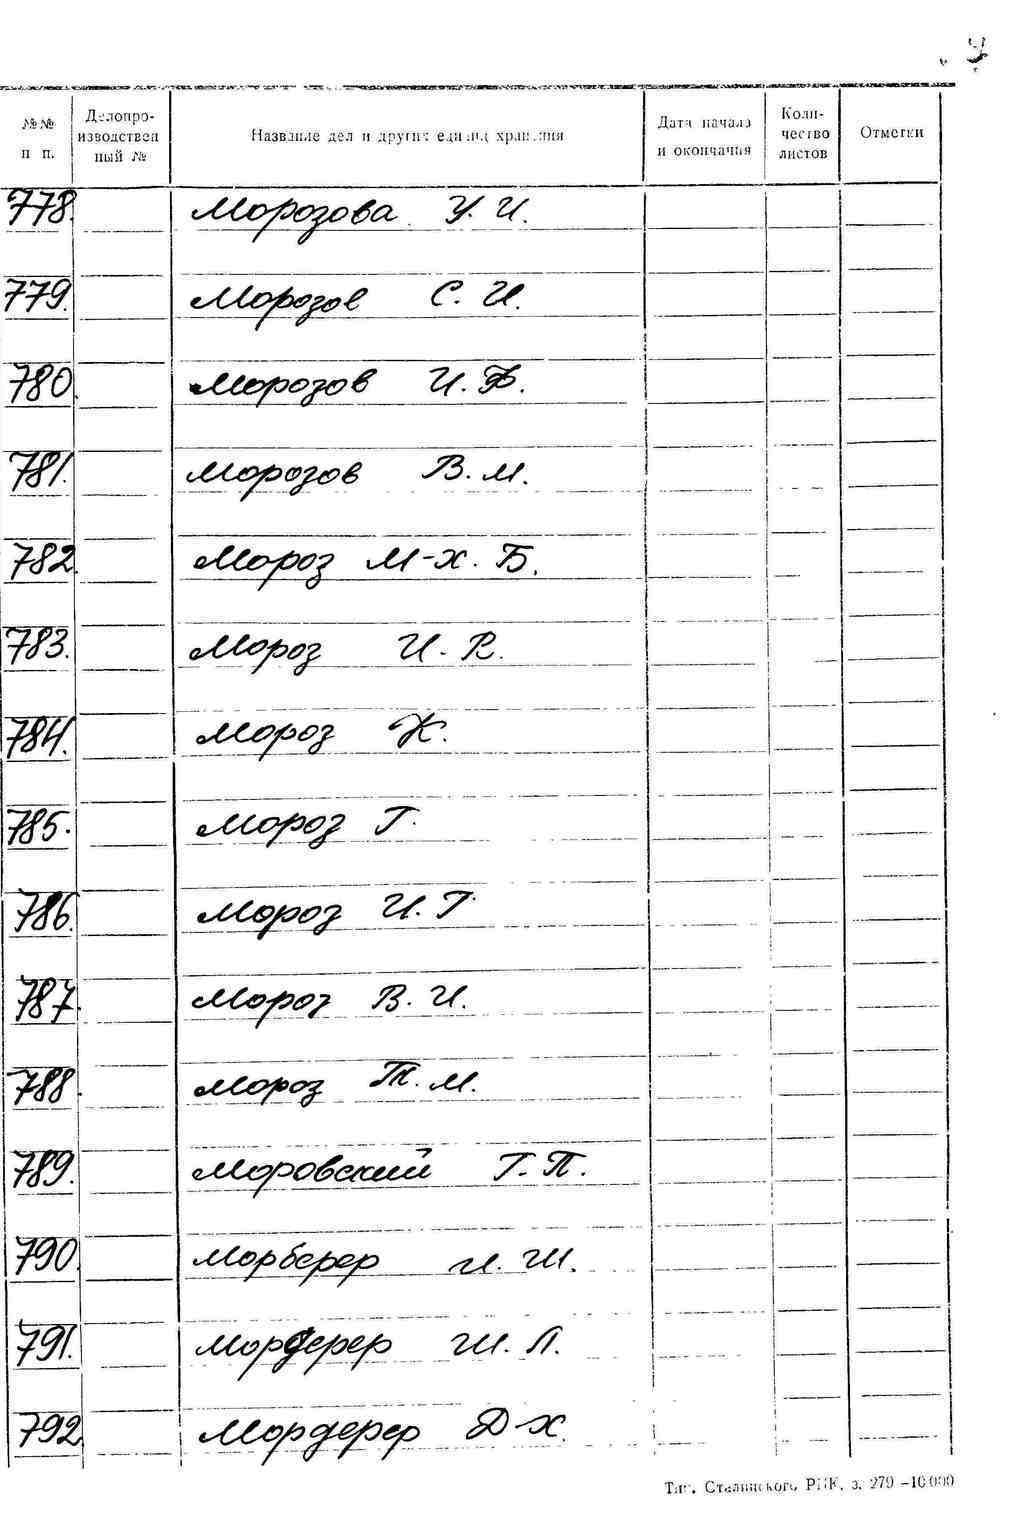 №№ п п. Делопро-изводствен ный № Название дел и других единиц хранения Дата начала и окончания Коли-чество листов Отметки
778. Морозова У. И.
779. Морозов С. И.
780. Морозов И. Ф.
781. Морозов В. М.
782. Мороз М-х. Б.
783. Мороз И. Я.
784. Мороз К.
785. Мороз Г.
786. Мороз И. Г.
787. Мороз В. И.
788. Мороз Т. М.
789. Моровский Г. П.
790. Морберер И. Ш.
791. Мордерер Ш. Л.
792. Мордерер Д-х.
Тип. Сталинского РПК, з. 279 –10.000